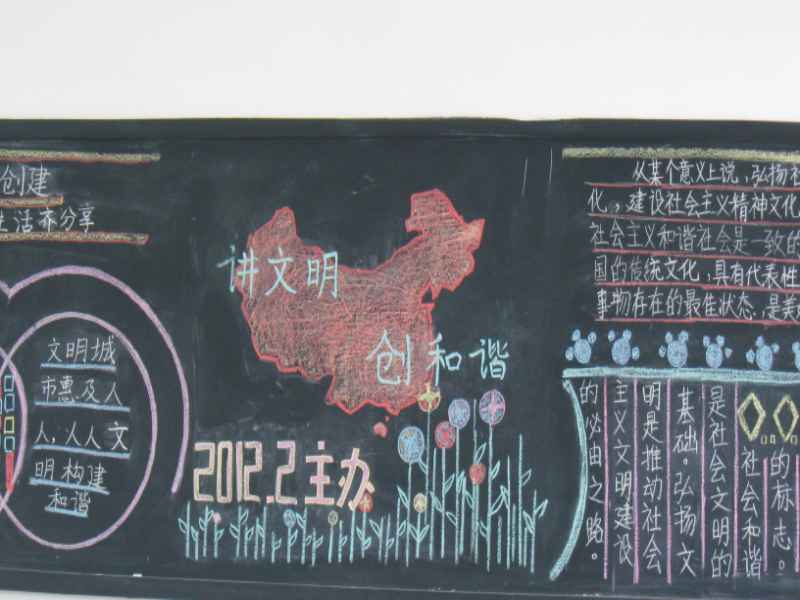 创建
生活齐分享
文明城
市惠及人
人,人人文
明构建
和谐
讲文明
创和谐
2012.2主办
从某个意义上说,弘扬
化,建设社会主义精神文化
社会主义和谐社会是一致的
国的传统文化,具有代表性
事物存在的最佳状态,是美
的标志。
社会和谐
是社会文明的
基础。弘扬文
明是推动社会
主义文明建设
的必由之路。